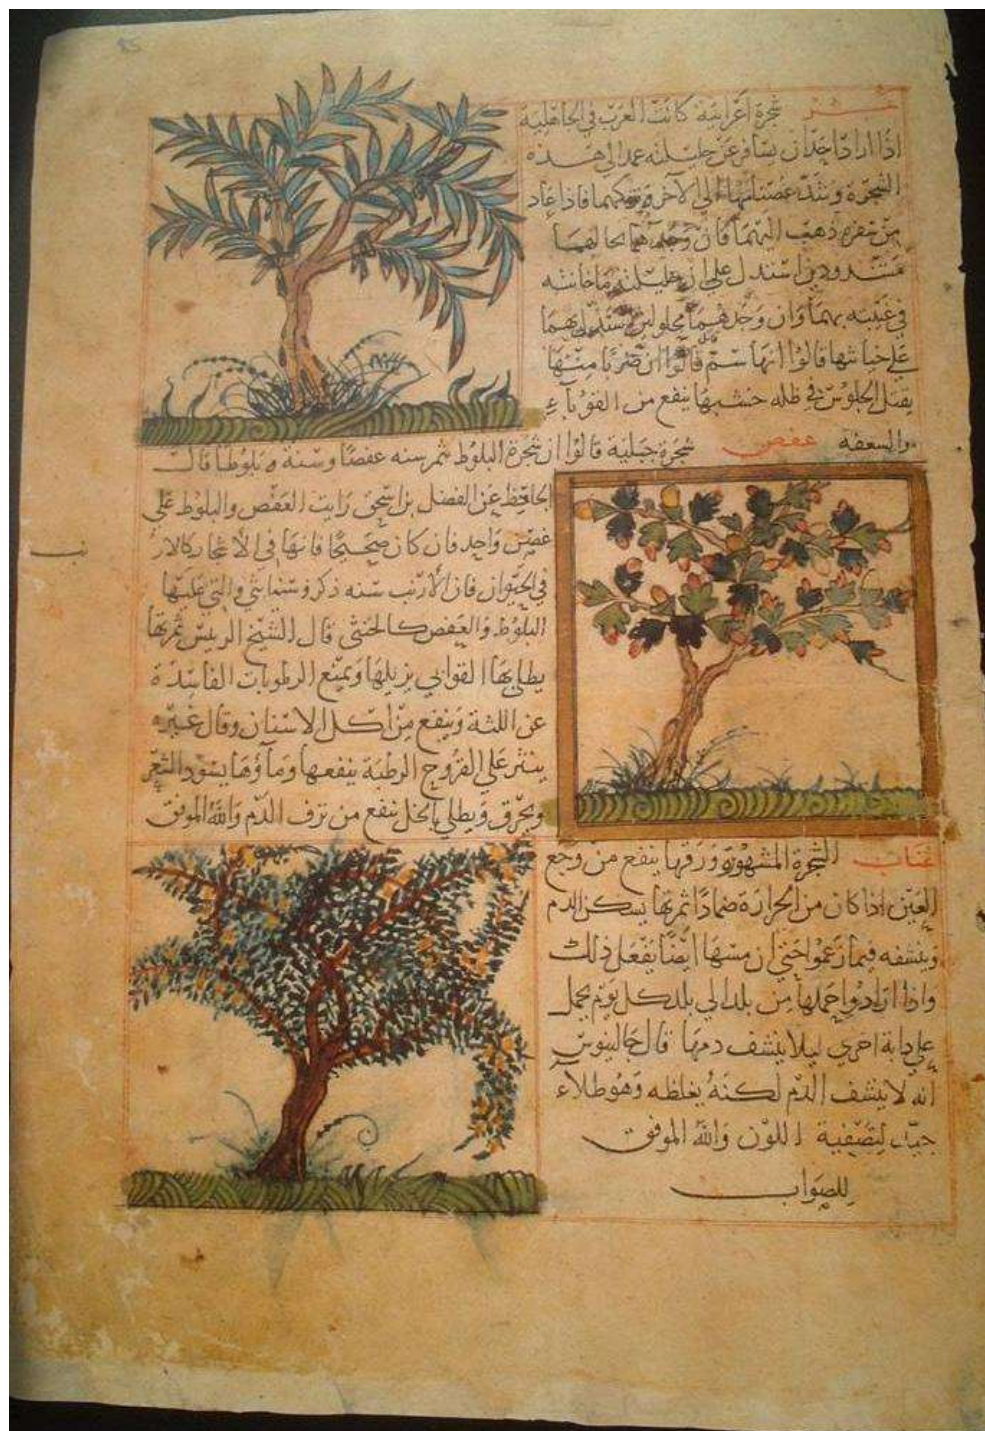 عشر شجرة أعرابية كانت العرب في الجاهلية
إذا أراد أحد أن يسافر عن حليلته عمد إلى هذه
الشجرة وشد غصنا منها إلى الآخر وتركهما فإذا عاد
من سفره ذهب إليهما فإن وجدهما بحالهما
مشدودين استدل على أن حليلته ما خانته
في غيبته بهما وإن وجدهما محلولين استدل بهما
على خيانتها قالوا انها سم قالوا ان ضربا منها
يقتل الجلوس في ظله خشبها ينفع من القوباء
والسعفة عفص شجرة جبلية قالوا ان شجرة البلوط تثمر سنة عفصا وسنة بلوطا قال
الجاحظ عن الفضل بن اسحق رايت العفص والبلوط على
غصن واحد فان كان صحيحا فانها في الاشجار كالار
في الحيوان فان الأرنب سنة ذكر وسنة انثى والتي عليها
البلوط والعفص كالخنثى قال الشيخ الرئيس ثمرتها
يطلى بها القوابي يزيلها ويمنع الرطوبات الفاسدة
عن اللثة وينفع من اكل الاسنان وقال غيره
ينثر على القروح الرطبة ينفعها وماؤها يسود الشعر
ويحرق ويطلى بالخل ينفع من نزف الدم والله الموفق
عناب الشجرة المشهورة ورقها ينفع من وجع
العين اذا كان من الحرارة ضمادا ثمرتها يسكن الدم
وينشفه فيما زعموا حتى ان مسها أيضا يفعل ذلك
واذا ارادوا حملها من بلد الى بلد كل يوم يحمل
على دابة اخرى ليلا ينشف دمها قال جالينوس
انه لا ينشف الدم لكنه يغلظه وهو طلاء
جيد لتصفية اللون والله الموفق
للصواب